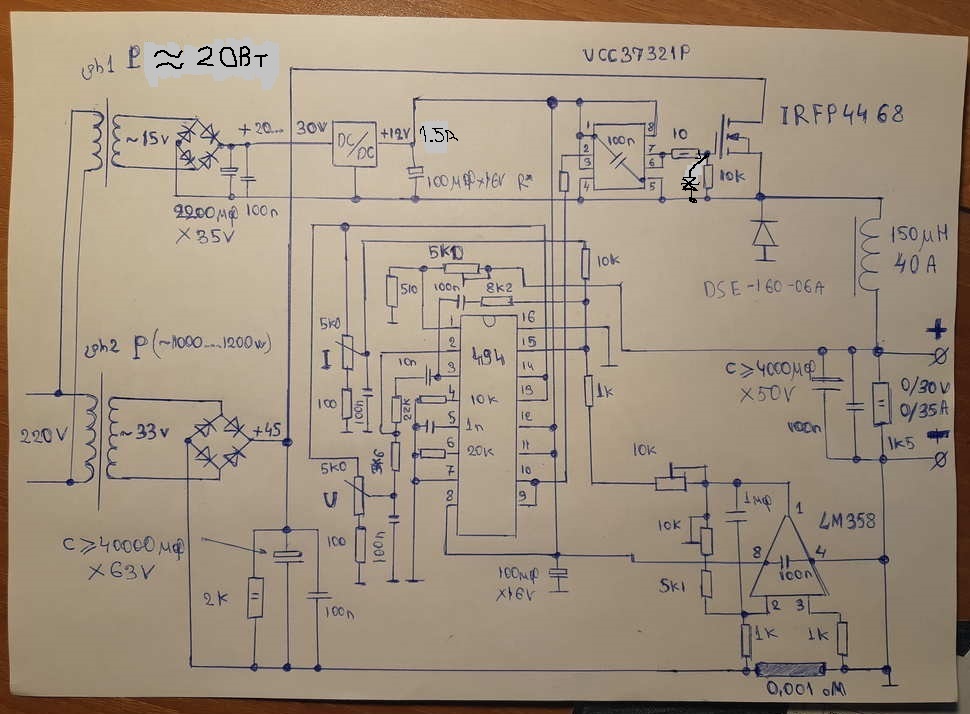 тр1 P ≈ 20Вт
VCC37321P
~15v
+20... 30v
DC/DC
+12v
1.5A
100мф×16V
R*
2200мф
×35V
100n
1
2
3
4
100n
8
7
6
5
10
10K
IRFP4468
150мH
40A
DSE-160-06A
5K0
510
100n
8K2
10K
5K0
I
100
100n
1
2
3
4
5
6
7
8
494
16
15
14
13
12
11
10
9
10n
22K
10K
1n
20K
3K6
1K
тр2 P(~1000....1200w)
220V
~33v
+45
C≥4000мф
×50V
100n
+
0/30V
0/35A
1K5
5K0
U
100
100n
100мф
×16V
C≥40000мф
×63V
2K
100n
10K
10K
5K1
1мф
1
LM358
8
4
100n
2
3
1K
1K
0,001 ом